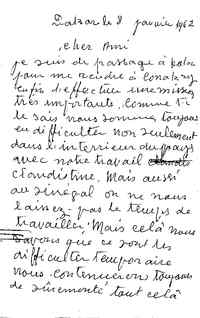 Dakar le 8 janvier 1962
Cher Ami
je suis de passage à
pour me rendre à Conakry
enfin d'effectuer une mission
très importante. Comme tu
le sais nous sommes toujours
en difficulter non seulement
dans l'interieur du pays
avec notre travail
clandistine. Mais aussi
au Sénégal on ne nous
laissez pas le temps de
travailler. Mais celà nous
savons que ce sont les
difficulter temporaire
nous continueron toujours
de surmonté tout celà